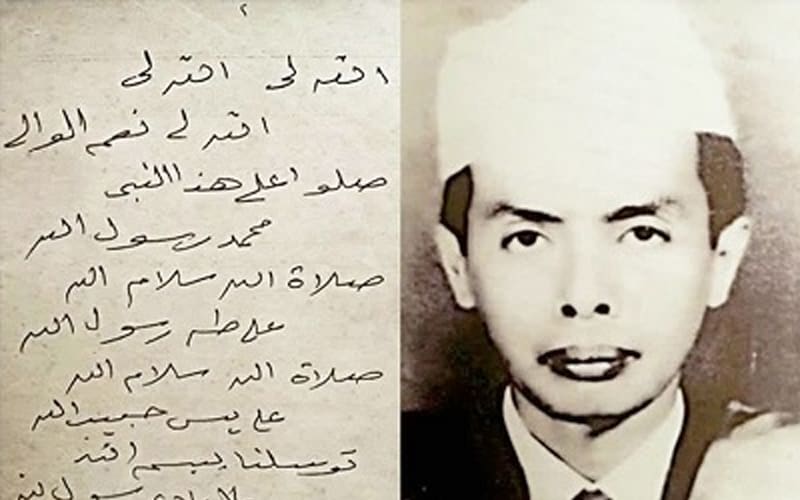 ٢
الله لى الله لى
الله لى نعم الوالى
صلوا على هذا النبى
محمد رسول الله
صلاة الله سلام الله
على طه رسول الله
صلاة الله سلام الله
على يس حبيب الله
توسلنا ببسم الله
رسول لله